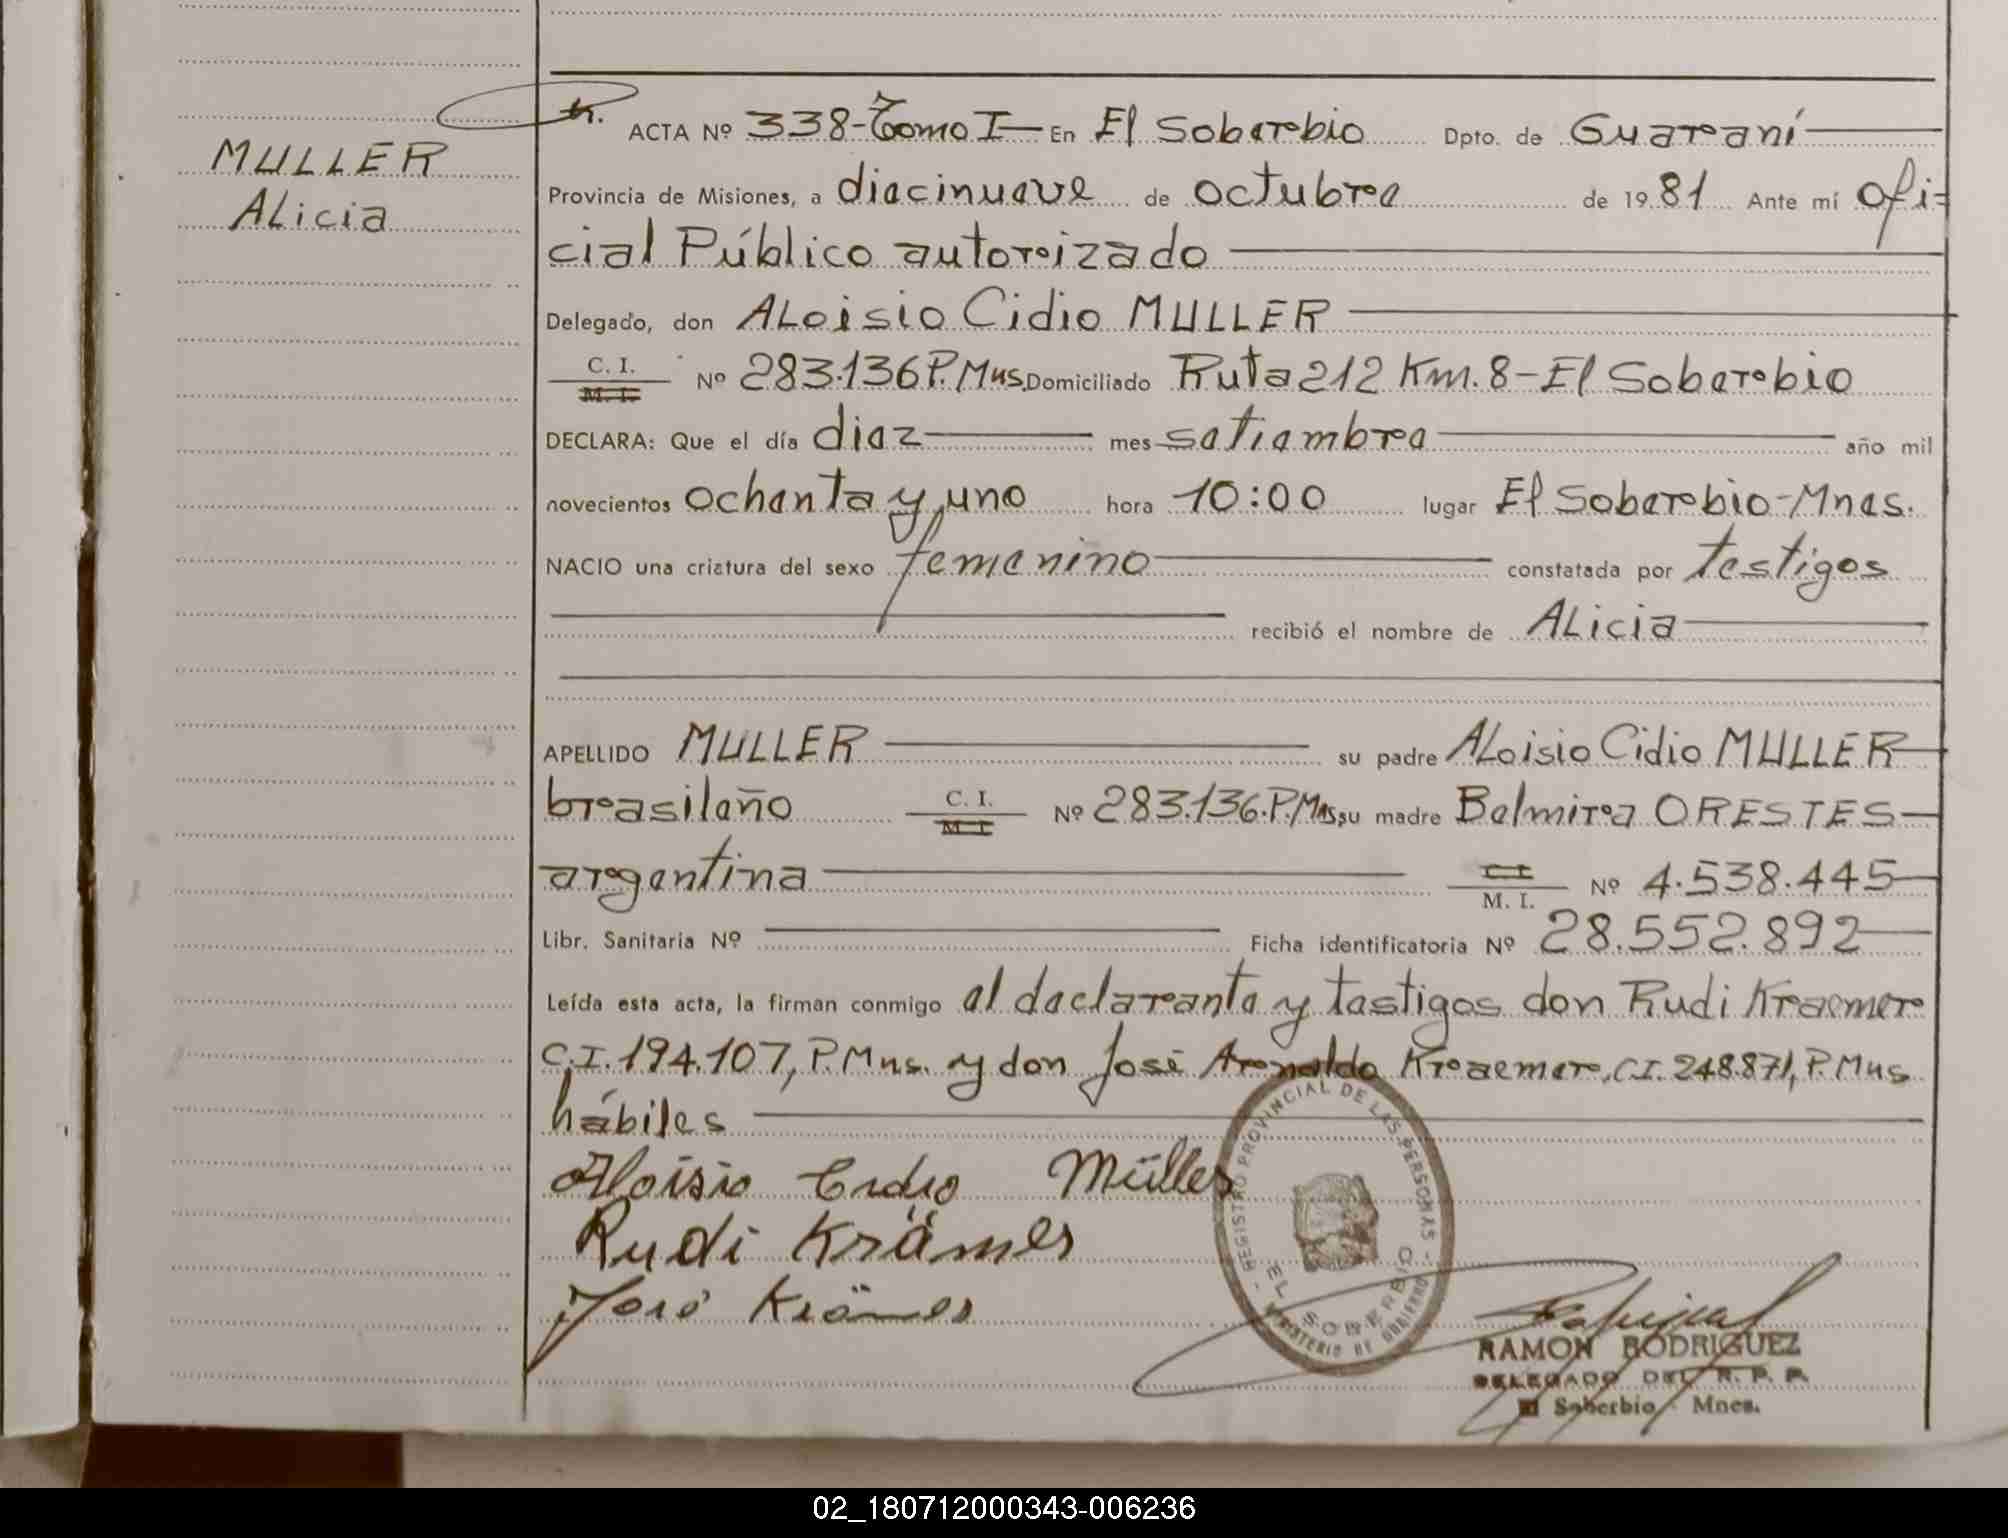 MULLER
Alicia
ACTA Nº 338-Tomo I En El Soberbio Dpto. de Guaraní
Provincia de Misiones, a diecinueve de octubre de 19 81 Ante mí ofi=
cial Público autorizado
Delegado, don Aloisio Cidio MULLER
C. I.
M. I. Nº 283.136 P. Mns. Domiciliado Ruta 212 Km. 8-El Soberbio
DECLARA: Que el día diez mes setiembre año mil
novecientos ochenta y uno hora 10:00 lugar El Soberbio-Mnes.
NACIO una criatura del sexo femenino constatada por testigos
recibió el nombre de Alicia
APELLIDO MULLER su padre Aloisio Cidio MULLER
brasileño C. I.
M. I. Nº 283.136.P.Mns, su madre Belmira ORESTES
argentina C. I.
M. I. Nº 4.538.445
Libr. Sanitaria Nº Ficha identificatoria Nº 28.552.892
Leída esta acta, la firman conmigo el declarante y testigos don Rudi Kraemer
C.I. 194.107, P. Mns. y don José Arnaldo Kraemer, C.I. 248.871, P. Mns
hábiles
Aloisio Cidio Müller
Rudi Krämer
José Krämer
REGISTRO PROVINCIAL DE LAS PERSONAS -
EL SOBERBIO
MINISTERIO DE GOBIERNO -
RAMON RODRIGUEZ
DELEGADO DEL R. P. P.
El Soberbio - Mnes.
02_180712000343-006236